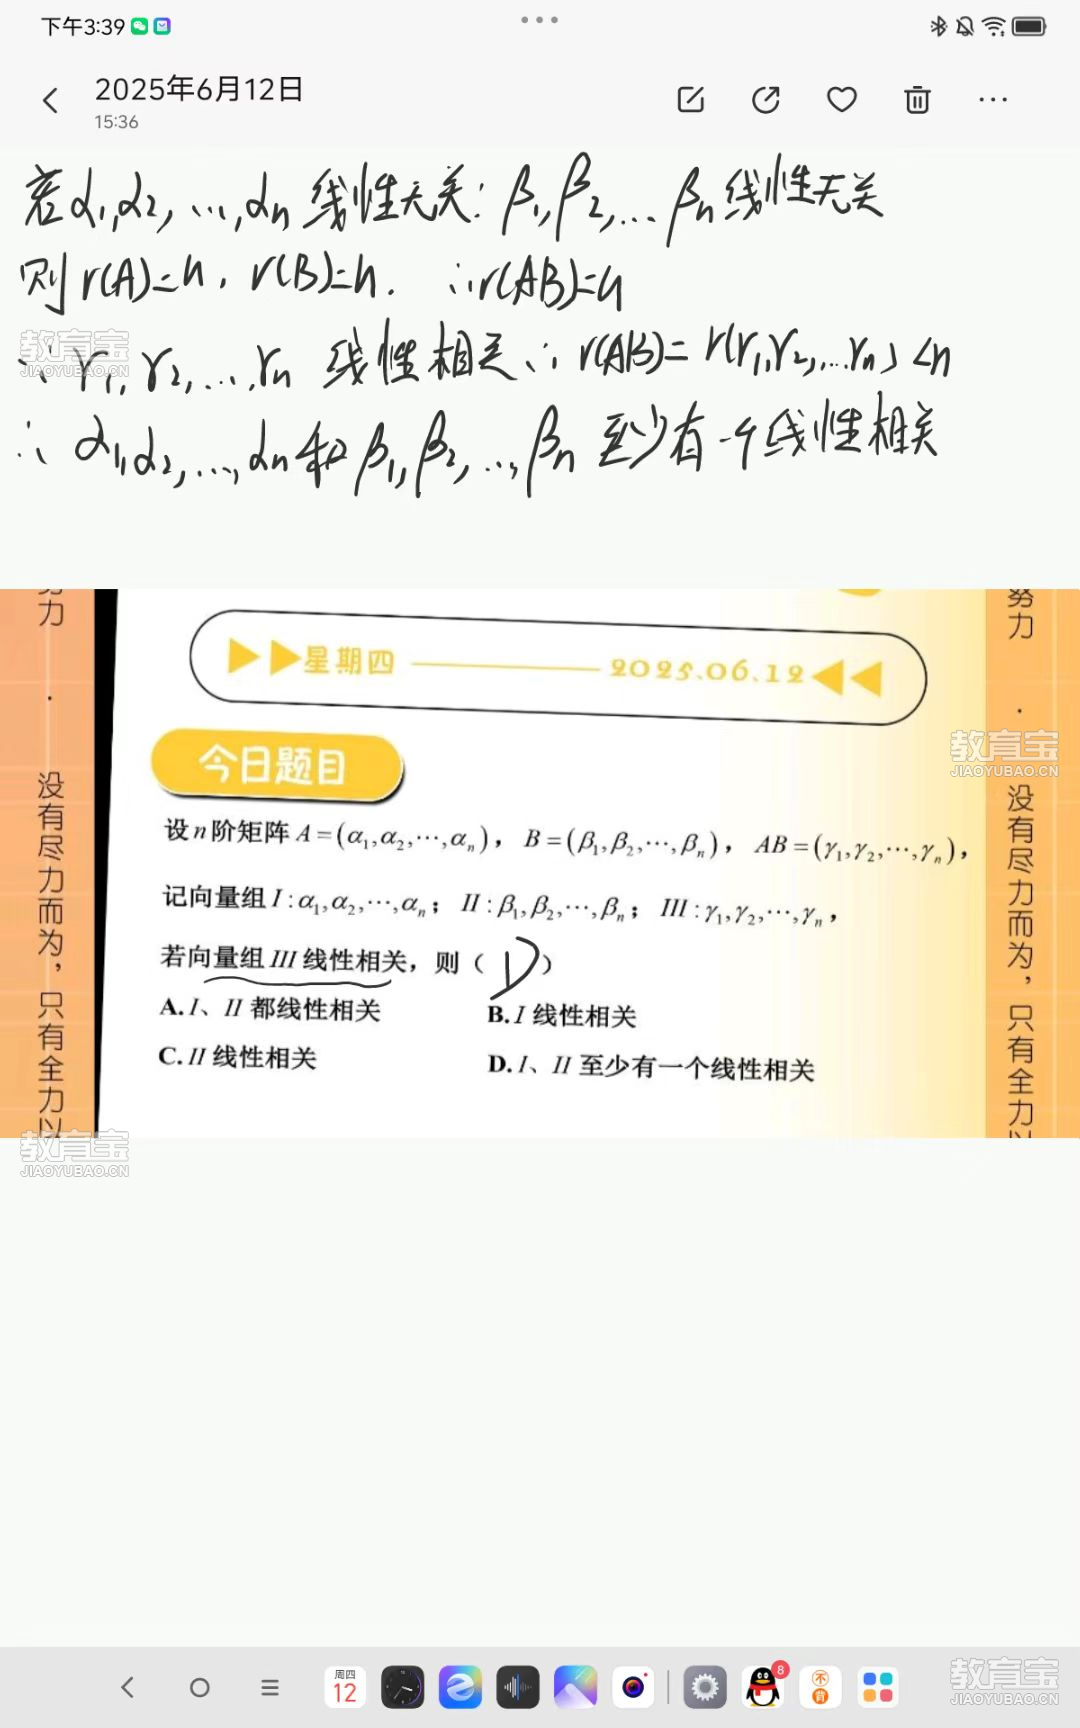 下午3:39
2025年6月12日
15:36
若α₁,α₂,…,αn 线性无关; β₁,β₂,…βn 线性无关
则 r(A)=n, r(B)=n. ∴r(AB)=n
∵ γ₁,γ₂,…,γn 线性相关 ∴ r(AB)= r(γ₁,γ₂,…γn) <n
∴ α₁,α₂,…,αn 和 β₁,β₂,…,βn 至少有一个线性相关
教育宝
JIAOYUBAO.CN
努力 · 没有尽力而为，只有全力以
星期四 2025.06.12
努力 · 没有尽力而为，只有全力以
今日题目
教育宝
JIAOYUBAO.CN
设n阶矩阵 A=(α₁,α₂,⋯,αn)， B=(β₁,β₂,⋯,βn)， AB=(γ₁,γ₂,⋯,γn)，
记向量组 I:α₁,α₂,⋯,αn； II:β₁,β₂,⋯,βn； III:γ₁,γ₂,⋯,γn，
若向量组 III 线性相关，则（ D ）
A. I、II 都线性相关 B. I 线性相关
C. II 线性相关 D. I、II 至少有一个线性相关
教育宝
JIAOYUBAO.CN
周四
12
8
不背
教育宝
JIAOYUBAO.CN